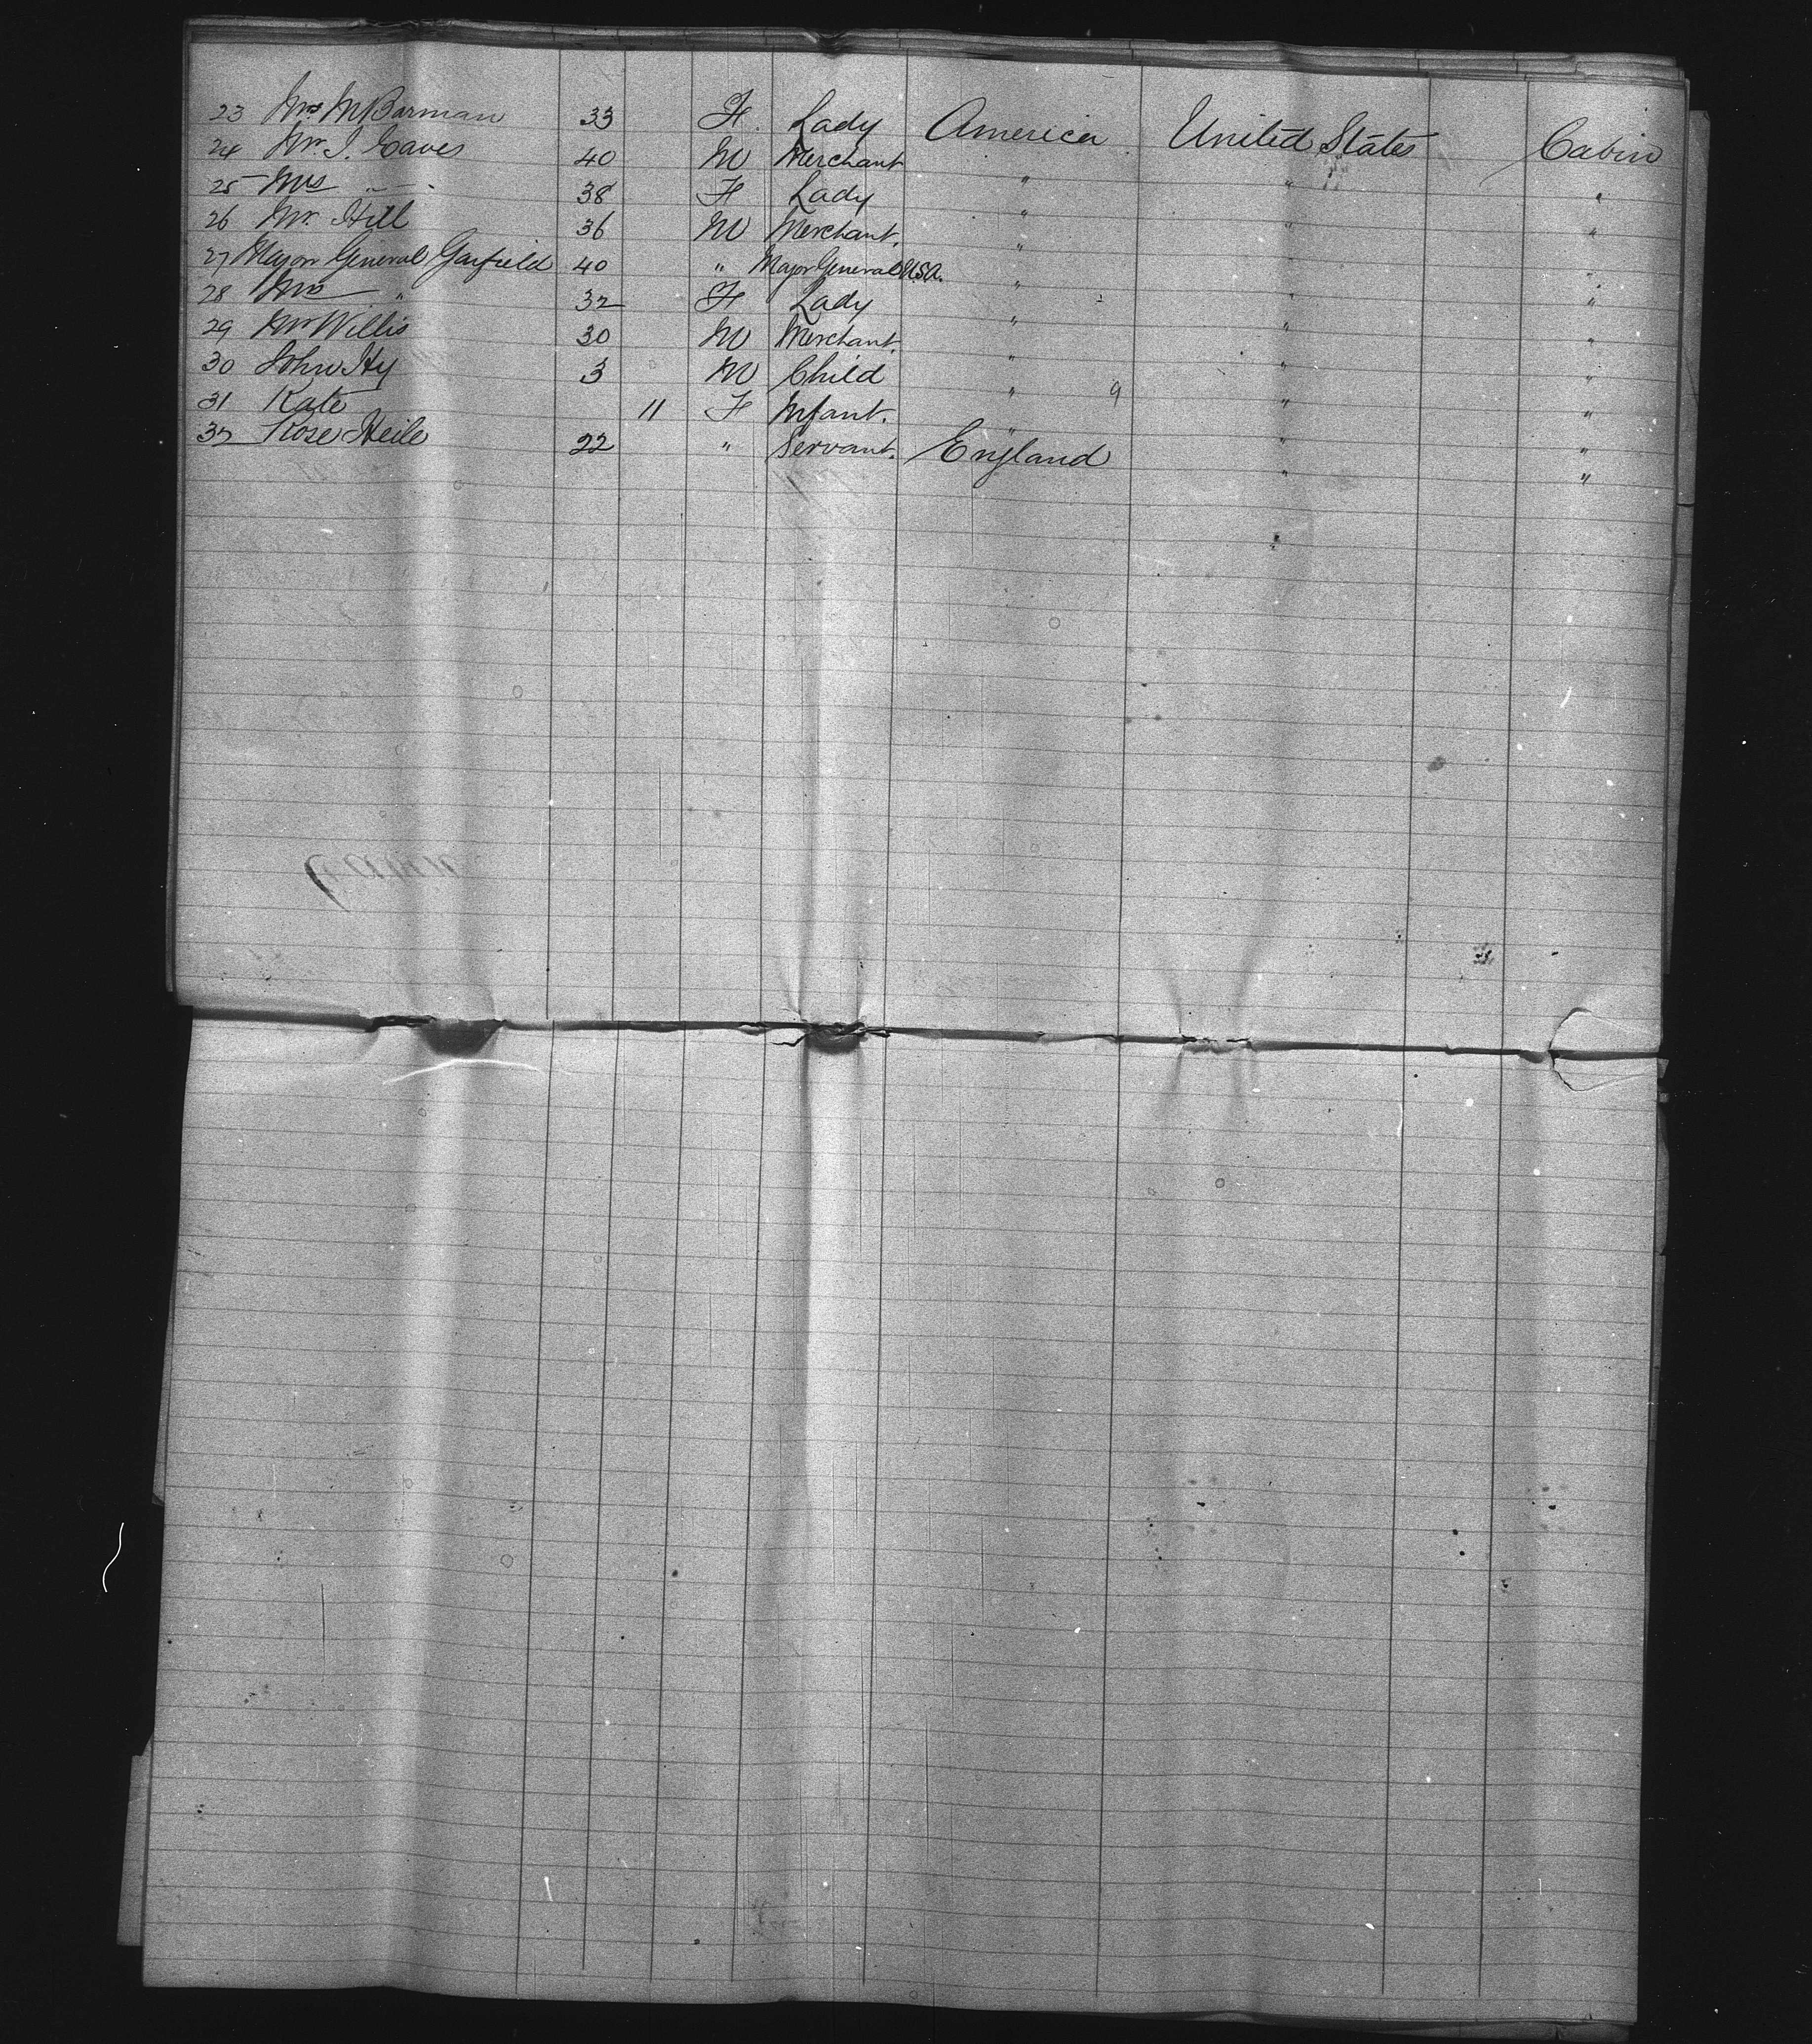 23 Mrs M Barman 33 F. Lady America United States Cabin
24 Mr. J. Eaves 40 M Merchant " " "
25 Mrs " 38 F Lady " " "
26 Mr. Hill 36 M Merchant. " " "
27 Major General Garfield 40 " Major General U.S.A. " " "
28 Mrs " 32 F Lady " " "
29 Mr Willis 30 M Merchant. " " "
30 John Hy 3 M Child " 9 " "
31 Kate 11 F Infant. " " "
32 Rose Heile 22 " Servant. England " "